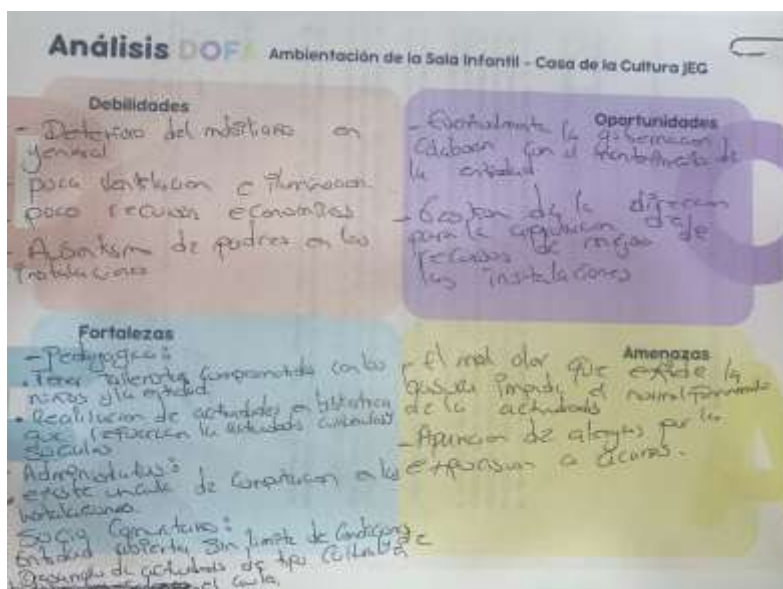 Análisis DOFA Ambientación de la Sala Infantil - Casa de la Cultura JEG
Debilidades
- Deterioro del mobiliario en
general
- poca ventilacion e iluminacion
- poco recursos economicos
- Ausentismo de padres en las
instalaciones
Oportunidades
- Eventualmente la gobernacion
con el mantenimiento de
la entidad
- Gestion de la direccion
para la adquisicion de
recursos de mejora de
las instalaciones
Fortalezas
- Pedagogica:
• Tener talleristas comprometidos con los
niños y la entidad
• Realizacion de actividades en biblioteca
que refuerzan la actividades
- Administrativas:
• existe de computacion en las
instalaciones
Socio Comunitario:
Entidad abierta sin limite de condiciones
Desarrollo de actividades de tipo cultural
el aula.
Amenazas
- El mal olor que expide la
impide el normal
de la actividades
- Aparicion de alergias por la
exposicion a acaros.